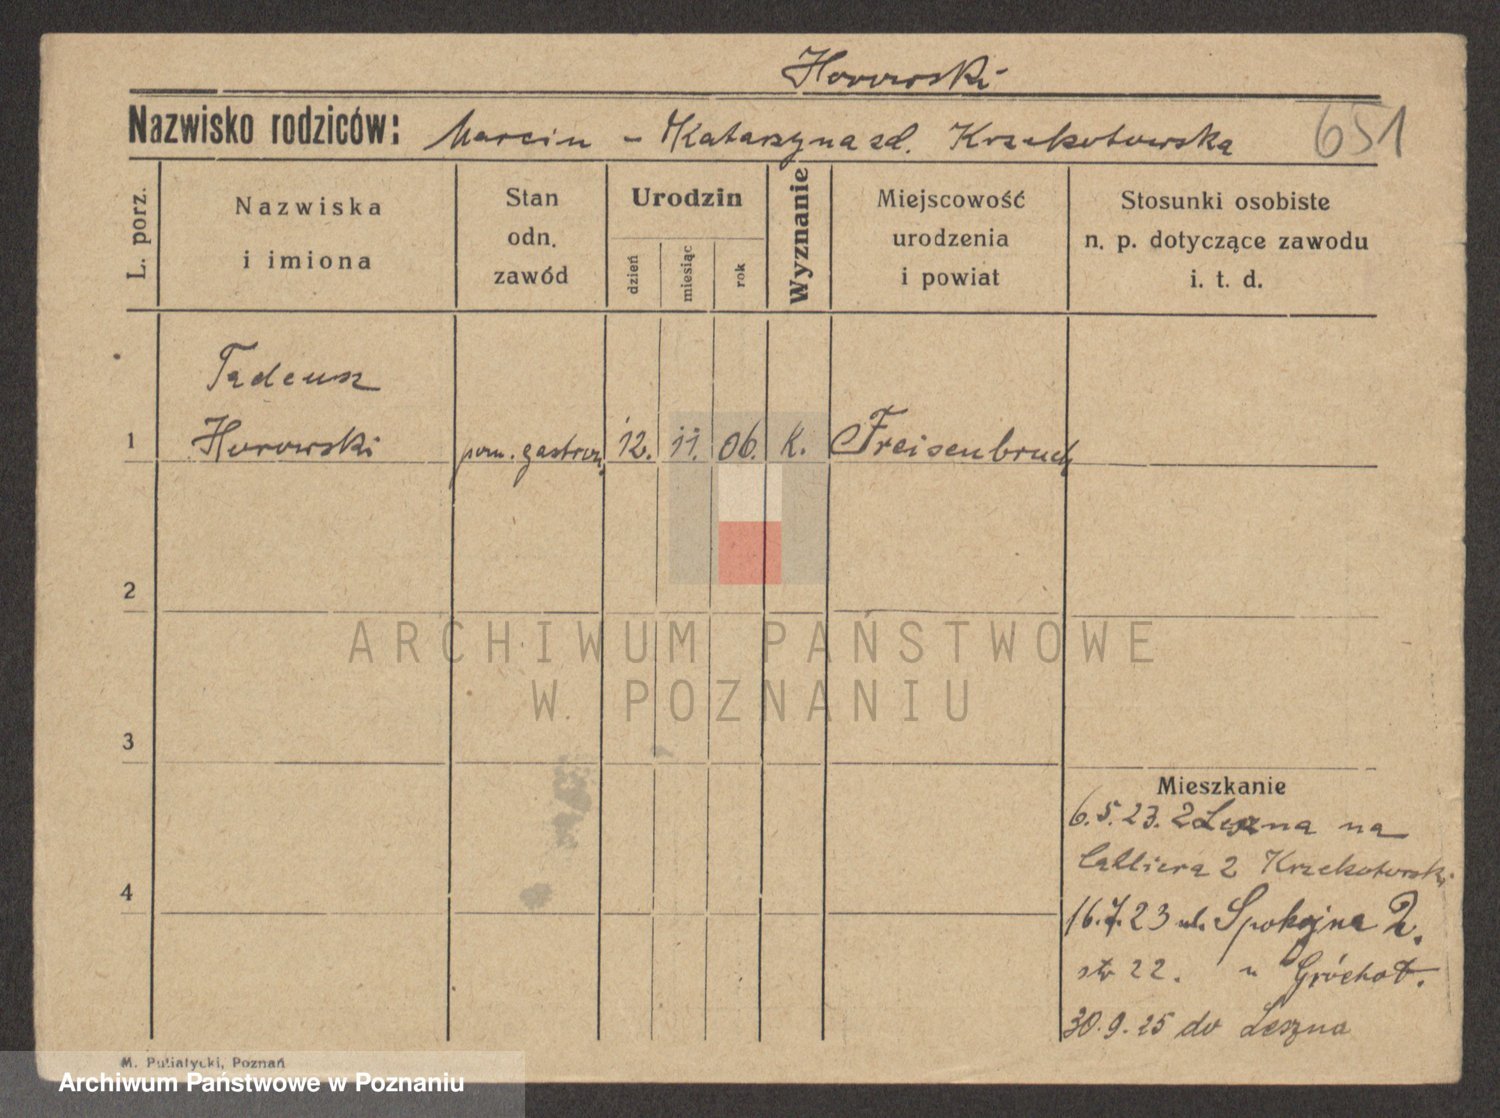 Horowski
Nazwisko rodziców: Marcin - Katarzyna zd. Krzekotowska 651
L. porz.
Nazwiska
i imiona
Stan
odn.
zawód
Urodzin
dzień
miesiąc
rok
Wyznanie
Miejscowość
urodzenia
i powiat
Stosunki osobiste
n. p. dotyczące zawodu
i. t. d.
Tadeusz
1 Horowski pom. gastron. 12. 11. 06. K. Freisenbruch
2
ARCHIWUM PAŃSTWOWE
W POZNANIU
3
Mieszkanie
6.5.23. z Leszna na
Calliera 2 Krzekotowski
4
16.7.23 ul. Spokojna 2.
str 22. u Gróchot.
30.9.25 do Leszna
M. Putiatycki, Poznań
Archiwum Państwowe w Poznaniu